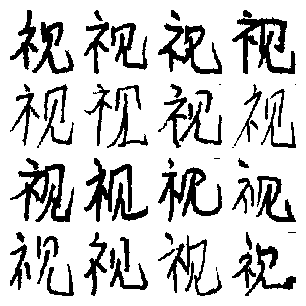 视视视视
视视视视
视视视视
视视视视